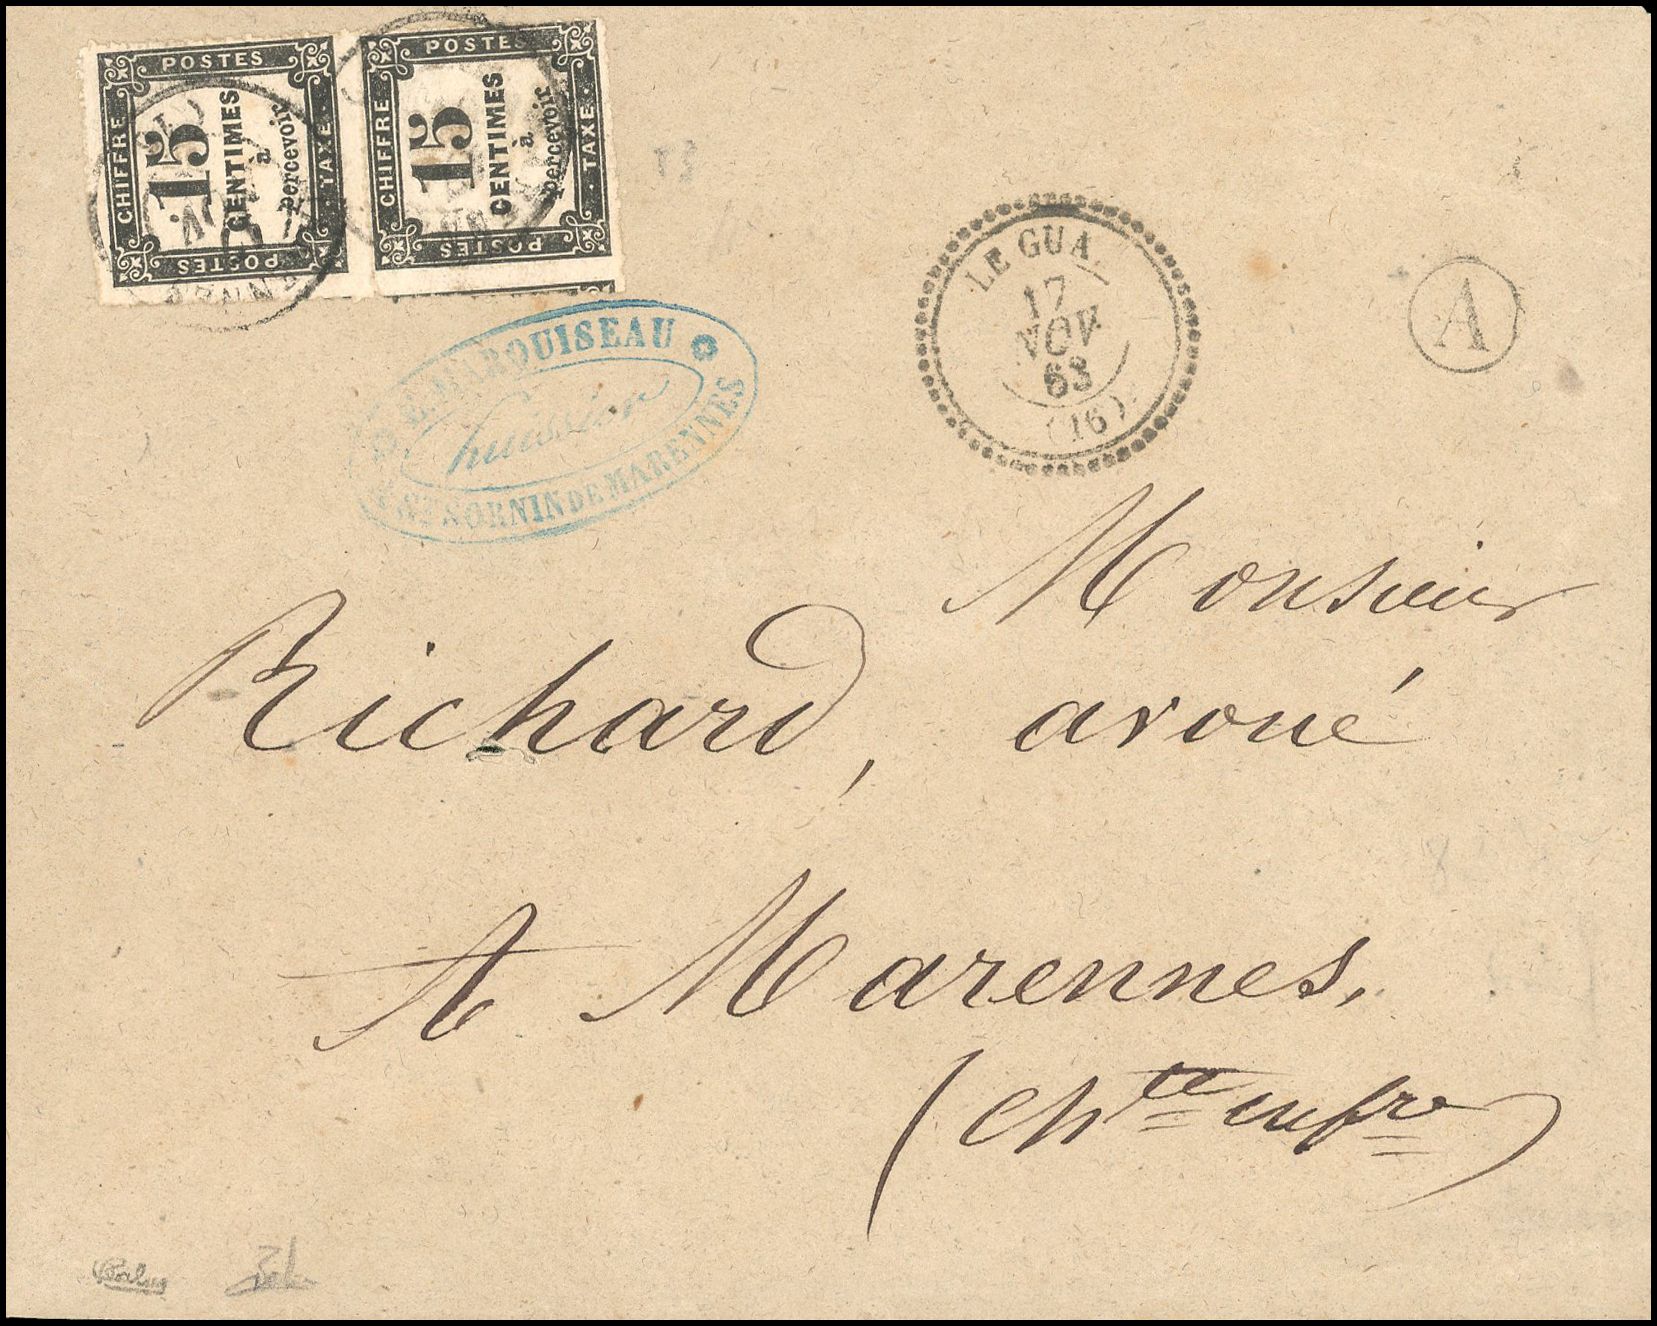 POSTES
CHIFFRE
15
CENTIMES
à
percevoir
TAXE
POSTES
POSTES
CHIFFRE
15
CENTIMES
à
percevoir
TAXE
POSTES
LE GUA
17
NOV.
63
(16)
A
E. MARQUISEAU
huissier
ST SORNIN DE MARENNES
Monsieur
Richard, avoué
A Marennes,
(Chte infre)